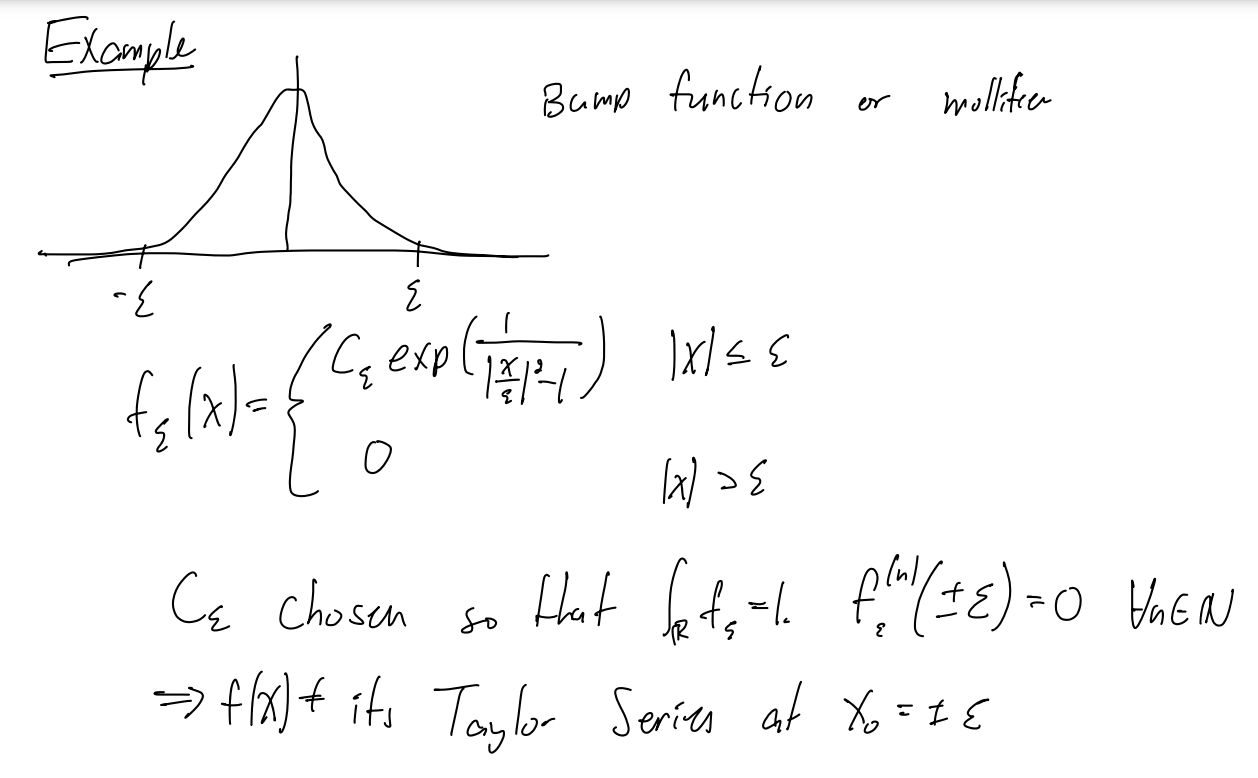 Example
Bump function or mollifier
-ε ε
f_ε(x) = { C_ε exp(1/(|x/ε|²-1)) |x| ≤ ε
0 |x| > ε
C_ε chosen so that ∫_ℝ f_ε = 1. f_ε^(n)(±ε) = 0 ∀n∈ℕ
⇒ f(x) ≠ its Taylor Series at x₀ = ±ε